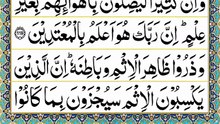 وَاِنَّ كَثِيْرًا لَّيُضِلُّوْنَ بِاَهْوَآئِهِمْ بِغَيْرِ
عِلْمٍ ؕ اِنَّ رَبَّكَ هُوَ اَعْلَمُ بِالْمُعْتَدِيْنَ ﴿۱۱۹﴾
وَذَرُوْا ظَاهِرَ الْاِثْمِ وَبَاطِنَهٗ ؕ اِنَّ الَّذِيْنَ
يَكْسِبُوْنَ الْاِثْمَ سَيُجْزَوْنَ بِمَا كَانُوْا